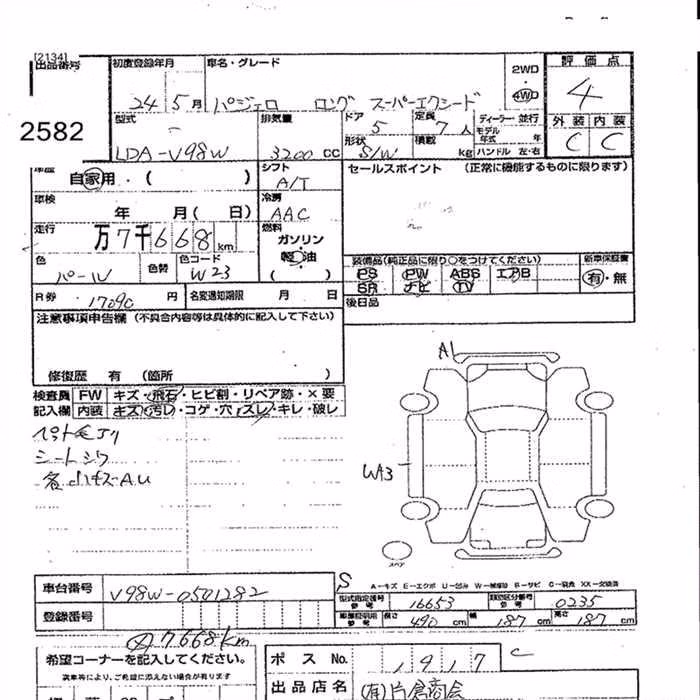 [2134]
出品番号
2582
初度登録年月 車名・グレード
24 5月 パジェロ ロング スーパーエクシード
2WD
・
4WD
評価点
4
外装 内装
C C
型式 排気量 ドア 定員 ディーラー・並行
LDA-V98W 3200cc 5 7人 モデル年式 年
形状 積載
S/W kg ハンドル 左・右
車歴 自家用・( )
シフト
A/T
セールスポイント (正常に機能するものに限ります)
車検 年 月( 日)
冷房
AAC
走行 万7千668km
燃料
ガソリン
・
軽油
( )
色 パール 色替 色コード W23
装備品(純正品に限り○をつけてください)
PS PW ABS エアB
SR ナビ TV
新車保証書
有・無
後日品
R券 17090円 名変通知期限 月 日
注意事項申告欄 (不具合内容等は具体的に記入して下さい)
修復歴 有 (箇所 )
検査員 FW キズ・飛石・ヒビ割・リペア跡・×要
記入欄 内装 キズ・汚レ・コゲ・穴・スレ・キレ・破レ
ペット毛アリ
シートシワ
各小キズAU
A1
WA3
スペア
S
A-キズ E-エクボ U-凹み W-補修跡 S-サビ C-腐食 XX-交換済
車台番号 V98W-0501282
登録番号
型式指定番号 参考 16653 類別区分番号 参考 0235
長さ 490cm 幅 187cm 高さ 187cm
7668km
希望コーナーを記入してください。
満車等により、ご希望に添えない場合が有ります
ポスNo. 1917 C
出品店名 (有)片倉商会